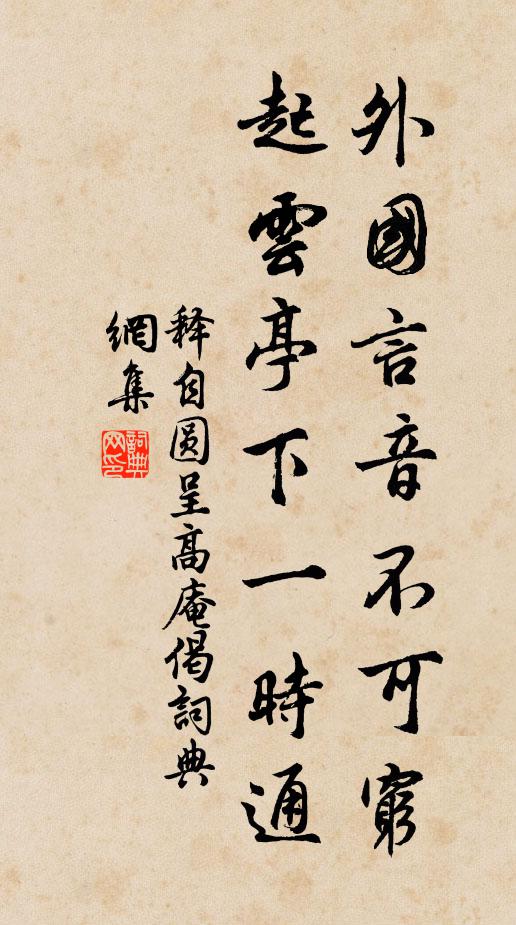 外國言音不可窮
起雲亭下一時通
释自圓呈高庵偈詞典
網集
詞典网印